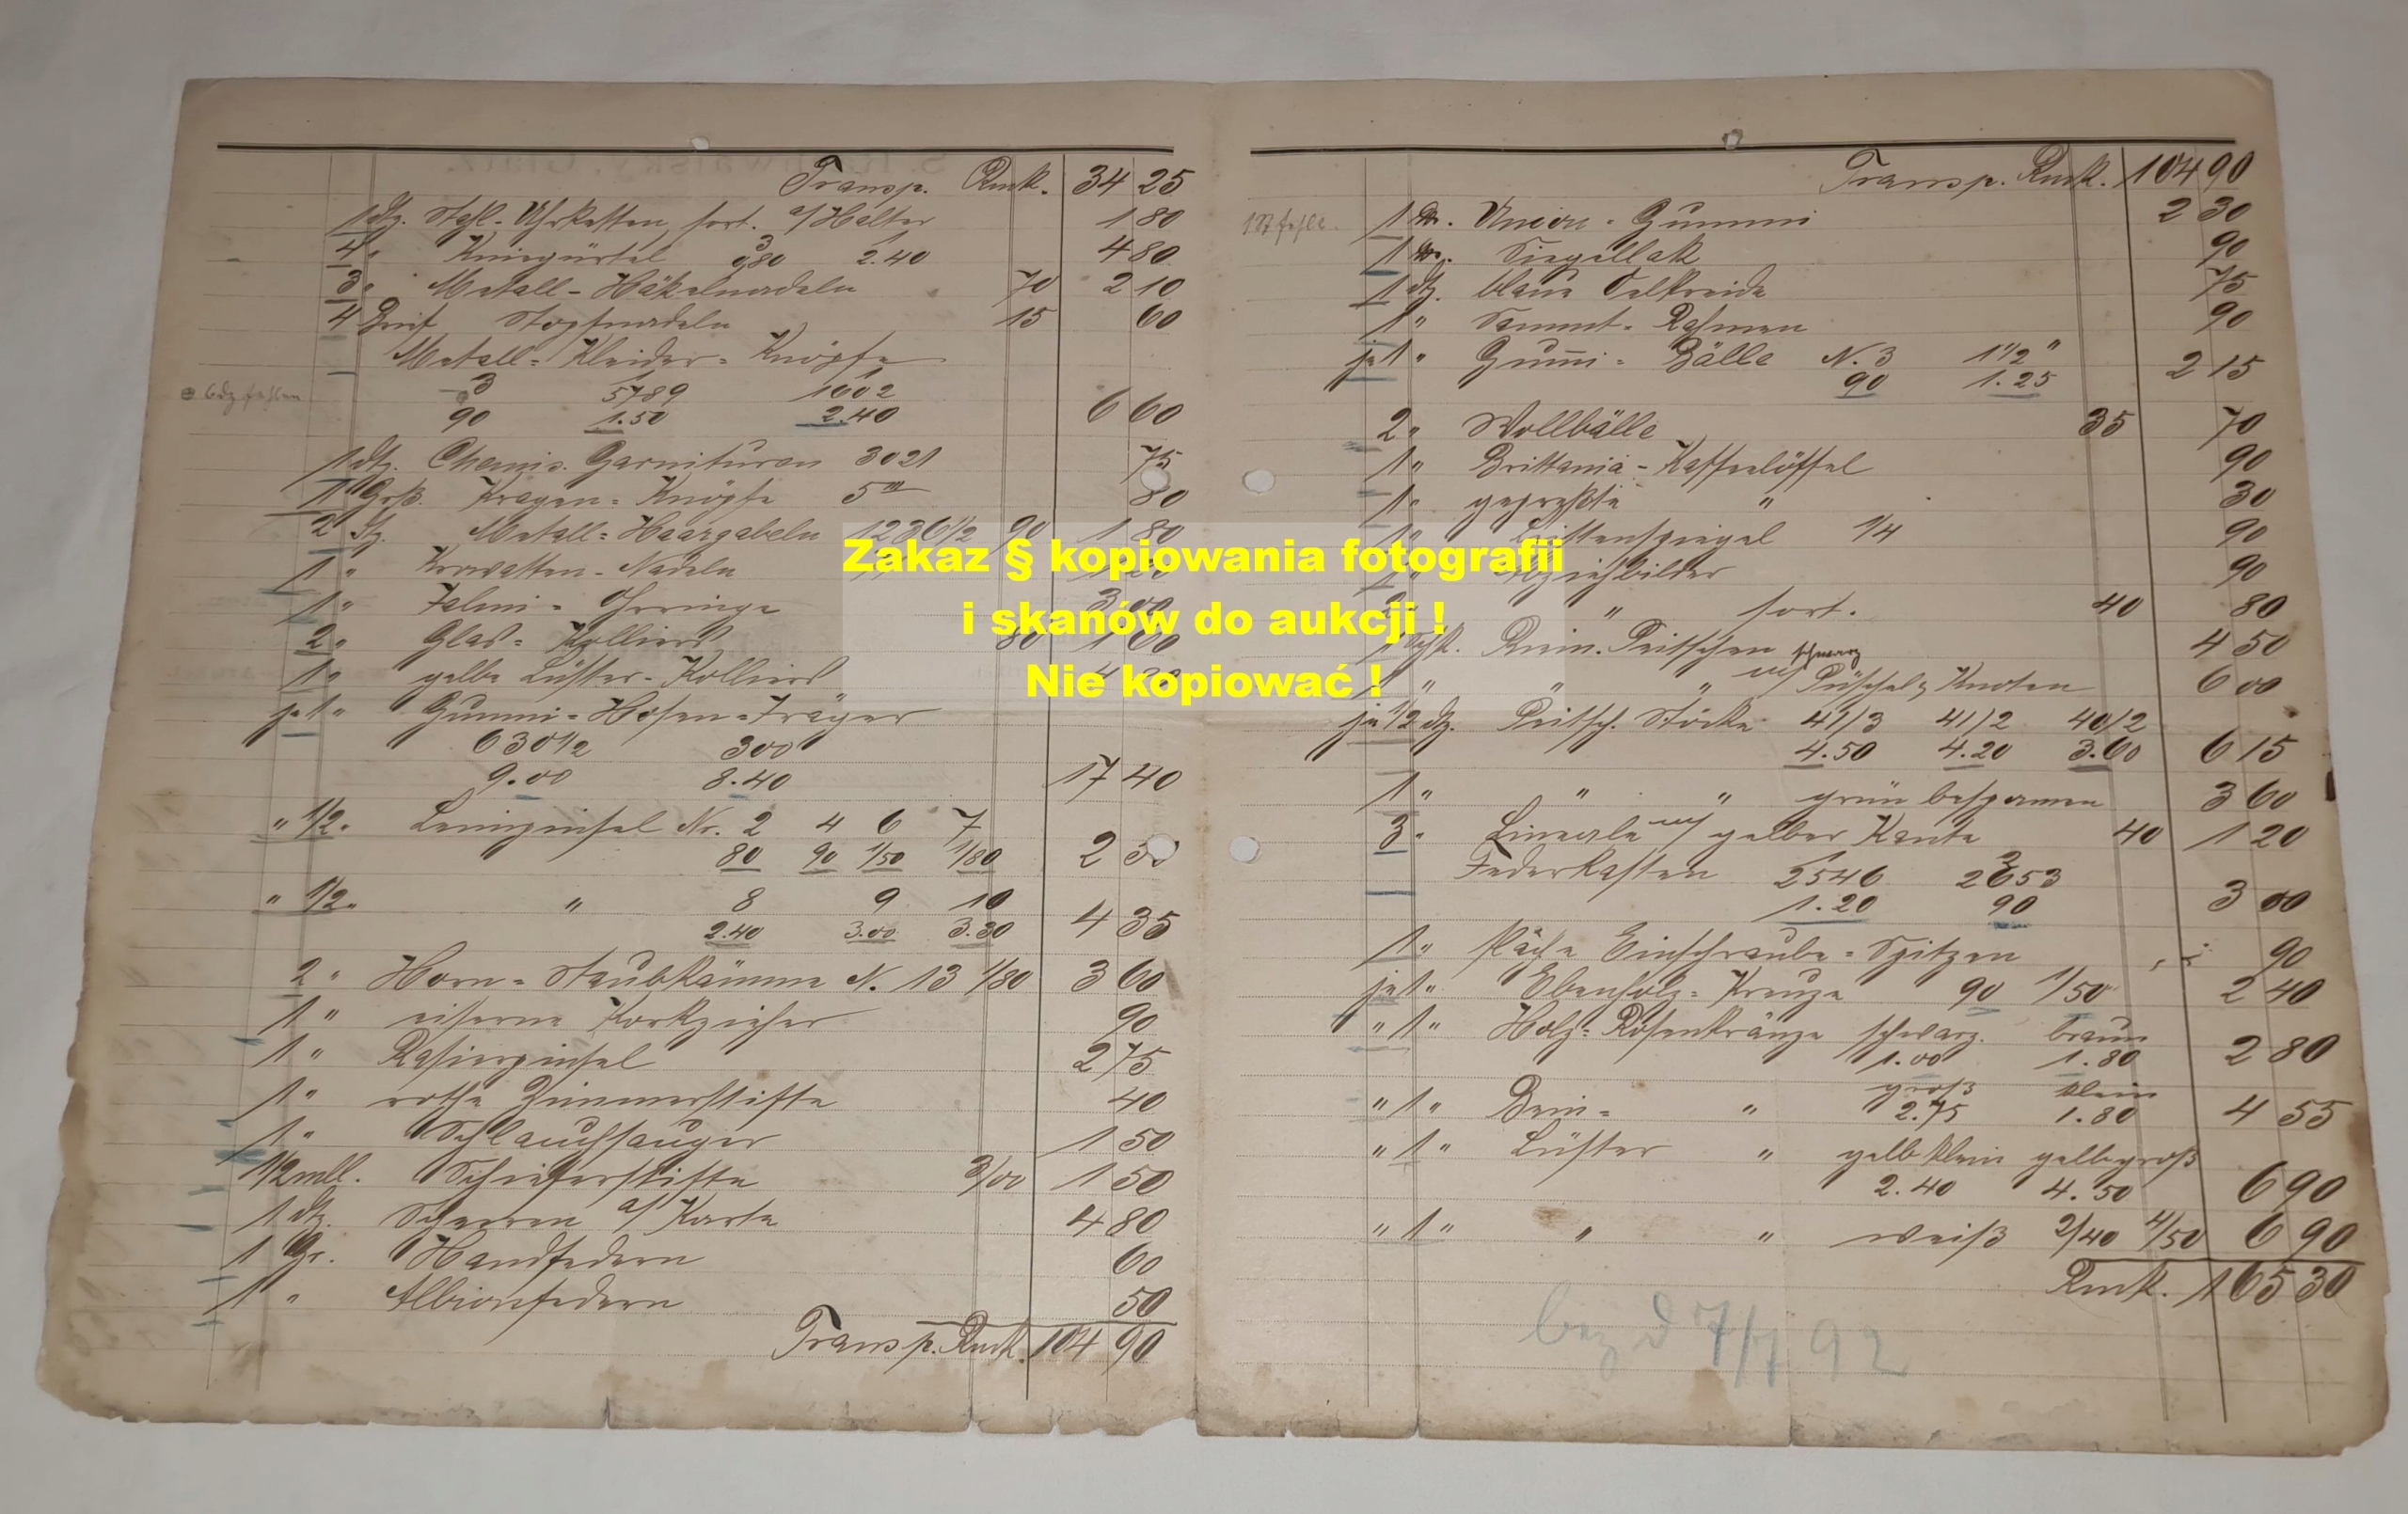 Transp. Rmk. 34 25
1 dtz. Stahl-Uhrketten, sort. a/Halter 1 80
4 " Kniegürtel 3 0,80 1 2.40 4 80
3 " Metall-Häkelnadeln 70 2 10
4 Brief Stopfnadeln 15 60
Metall-Kleider-Knöpfe
6 dz fehlen 3 1 5789 1 1002
90 1.50 2.40 6 60
1 dtz. Chemis. Garnituren 3021 75
1 Grß. Kragen-Knöpfe 5''' 80
2 Dtz. Metall-Haargabeln 1236 1/2 90 1 80
1 " Krawatten-Nadeln
1 " Talmi-Ohrringe 3 00
2 " Glas-Kolliers 80 1 60
1 " gelbe Lüster-Kolliers
je 1 " Gummi-Hosen-Träger
630 1/2 300
9.00 8.40 17 40
" 1/2 " Leimpinsel Nr. 2 4 6 7
80 90 1/50 1/80 2 50
" 1/2 " " 8 9 10
2.40 3.00 3.30 4 35
2 " Horn-Staubkämme N. 13 1/80 3 60
1 " eiserne Korkzieher 90
1 " Rasierpinsel 2 75
1 " rothe Zimmerstifte 40
1 " Schlauchsauger 1 50
1/2 mll. Schieferstifte 3/00 1 50
1 dtz. Scheeren a/ Karte 4 80
1 Gr. Handfedern 60
1 " Albionfedern 50
Transp. Rmk. 104 90
Transp. Rmk. 104 90
fehlt. 1 Union-Gummi 2 30
1 Siegellak 90
1 dtz. blaue Oelkreide 75
1 " Sammt-Rahmen 90
je 1 " Gum̅i-Bälle N. 3 1 1/2 "
90 1.25 2 15
2 " Wollbälle 35 70
1 " Brittania-Kaffeelöffel 90
1 " gepreßte " 30
1 " Leistenspiegel 1/4 90
1 " Abziehbilder 90
2 " " sort. 40 80
1 Riem. Peitschen 4 50
1 " " " schwarz m/ Püschel & Knoten 6 00
je 1/2 dtz. Peitsch. Stöcke 41/3 41/2 40/2
4.50 4.20 3.60 6 15
1 " " " grün besponnen 3 60
3 " Lineale m/ gelber Kante 40 1 20
Federkasten 1 2546 2 2653
1.20 90 3 00
1 " Einschraube-Spitzen 90
je 1 " Ebenholz-Kreuze 90 1/50 2 40
" 1 " Holz-Rosenkränze schwarz. braun
1.00 1.80 2 80
groß klein
" 1 " Bein- " 2.75 1.80 4 55
" 1 " Lüster " gelb klein gelb groß
2.40 4.50 6 90
" 1 " " " weiß 2/40 4/50 6 90
Rmk. 165 30
bez d 7/7 92
Zakaz § kopiowania fotografii
i skanów do aukcji !
Nie kopiować !